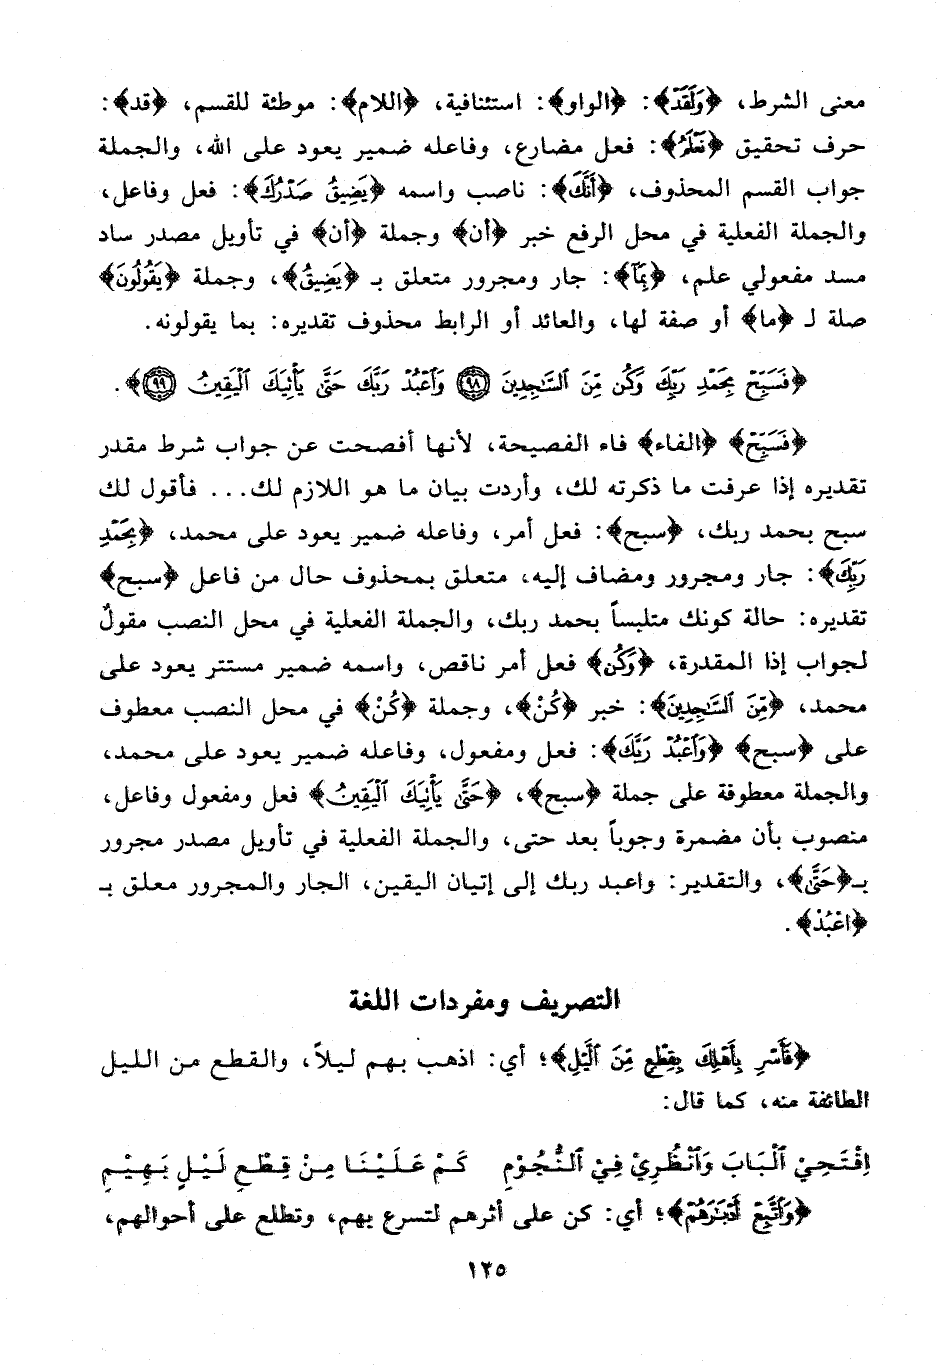 معنى الشرط، ﴿وَلَقَدْ﴾: ﴿الواو﴾: استئنافية، ﴿اللام﴾: موطئة للقسم، ﴿قد﴾:
حرف تحقيق ﴿نَعْلَمُ﴾: فعل مضارع، وفاعله ضمير يعود على الله، والجملة
جواب القسم المحذوف، ﴿أَنَّكَ﴾: ناصب واسمه ﴿يَضِيقُ صَدْرُكَ﴾: فعل وفاعل،
والجملة الفعلية في محل الرفع خبر ﴿أن﴾ وجملة ﴿أن﴾ في تأويل مصدر ساد
مسد مفعولي علم، ﴿بِمَا﴾: جار ومجرور متعلق بـ ﴿يَضِيقُ﴾، وجملة ﴿يَقُولُونَ﴾
صلة لـ ﴿ما﴾ أو صفة لها، والعائد أو الرابط محذوف تقديره: بما يقولونه.
﴿فَسَبِّحْ بِحَمْدِ رَبِّكَ وَكُن مِّنَ ٱلسَّٰجِدِينَ ۝٩٨ وَٱعْبُدْ رَبَّكَ حَتَّىٰ يَأْتِيَكَ ٱلْيَقِينُ ۝٩٩﴾.
﴿فَسَبِّحْ﴾ ﴿الفاء﴾ فاء الفصيحة، لأنها أفصحت عن جواب شرط مقدر
تقديره إذا عرفت ما ذكرته لك، وأردت بيان ما هو اللازم لك... فأقول لك
سبح بحمد ربك، ﴿سبح﴾: فعل أمر، وفاعله ضمير يعود على محمد، ﴿بِحَمْدِ
رَبِّكَ﴾: جار ومجرور ومضاف إليه، متعلق بمحذوف حال من فاعل ﴿سبح﴾
تقديره: حالة كونك متلبساً بحمد ربك، والجملة الفعلية في محل النصب مقولٌ
لجواب إذا المقدرة، ﴿وَكُن﴾ فعل أمر ناقص، واسمه ضمير مستتر يعود على
محمد، ﴿مِّنَ ٱلسَّٰجِدِينَ﴾: خبر ﴿كُنْ﴾، وجملة ﴿كُنْ﴾ في محل النصب معطوف
على ﴿سبح﴾ ﴿وَٱعْبُدْ رَبَّكَ﴾: فعل ومفعول، وفاعله ضمير يعود على محمد،
والجملة معطوفة على جملة ﴿سبح﴾، ﴿حَتَّىٰ يَأْتِيَكَ ٱلْيَقِينُ﴾ فعل ومفعول وفاعل،
منصوب بأن مضمرة وجوباً بعد حتى، والجملة الفعلية في تأويل مصدر مجرور
بـ﴿حَتَّى﴾، والتقدير: واعبد ربك إلى إتيان اليقين، الجار والمجرور معلق بـ
﴿اعْبُدْ﴾.
التصريف ومفردات اللغة
﴿فَأَسْرِ بِأَهْلِكَ بِقِطْعٍ مِّنَ ٱلَّيْلِ﴾؛ أي: اذهب بهم ليلاً، والقطع من الليل
الطائفة منه، كما قال:
اِفْتَحِيْ ٱلْبَابَ وَٱنْظُرِيْ فِيْ ٱلنُّجُوْمِ كَمْ عَلَيْنَا مِنْ قِطْعِ لَيْلٍ بَهِيْمِ
﴿وَٱتَّبِعْ أَدْبَٰرَهُمْ﴾؛ أي: كن على أثرهم لتسرع بهم، وتطلع على أحوالهم،
١٢٥